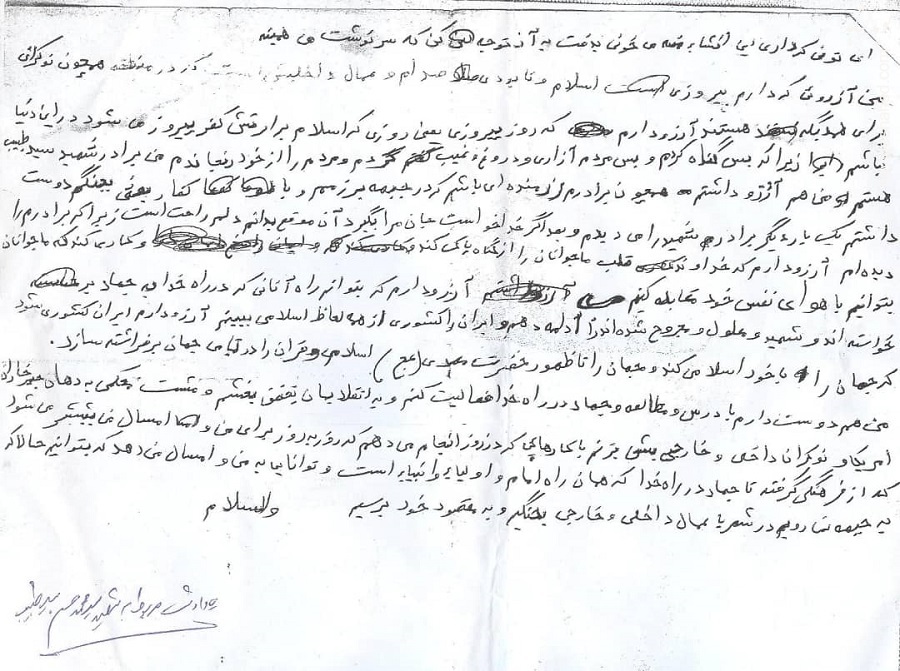 ای توفی کرداری این انشا به قصه می خوانی به دقت به آن توجه کن که سرنوشت می همینه
من آرزوی که دارم پیروزی است اسلام و نابودی صدام و عمال داخلیش است که در منطقه همچون نوکرانی
برای همدیگه هستند آرزو دارم که روز پیروزی یعنی روزی که اسلام برارتش کفر پیروز می شود در این دنیا
نباشم زیرا که بس گناه کردم و بس مردم آزاری و دروغ و غیبت کردم و مردم را از خود رنجاندم من برادر شهید سید طبیب
هستم من هم آرزو داشتم همچون برادرم رزمنده ای باشم که در جبهه برزمم و با کفار بعثی بجنگم دوست
داشتم یک بار دیگر برادر شهیدم را می دیدم و بعد اگر خدا خواست جان مرا بگیرد آن موقع بدانم دلم راحت است زیرا که برادرم را
دیده ام آرزو دارم که خداوند قلب ما جوانان را از گناه پاک کند و کاری کند که ما جوانان
بتوانیم با هوای نفس خود مقابله کنیم آرزو دارم که بتوانم راه آنانی که در راه خدا به جهاد بر
خواسته اند و شهید و معلول و مجروح شده اند را ادامه دهم و ایران را کشوری از هر لحاظ اسلامی ببینم آرزو دارم ایران کشوری شود
که جهان را با خود اسلامی کند و جهان را تا ظهور حضرت مهدی (عج) اسلامی و قران را در تمامی جهان برفراشته سازد.
من هم دوست دارم با درس و مطالعه و جهاد در راه خدا فعالیت کنم و به انقلابمان تحقق بخشم و مشت محکمی به دهان
آمریکا و نوکران داخلی و خارجیش بزنم با کارهایی که در روز انجام می دهم که روز به روز برای من و امثال من بیشتر می شود
که از فرهنگی گرفته تا جهاد در راه خدا که همان راه امام و اولیا و انبیاء است و توانایی به من و امسال من می دهد که بتوانیم حالا که
به جبهه نمی رویم در شهر با عمال داخلی و خارجی بجنگیم و به مقصود خود برسیم والسلام
شهید سید محمد حسن سید طبیب